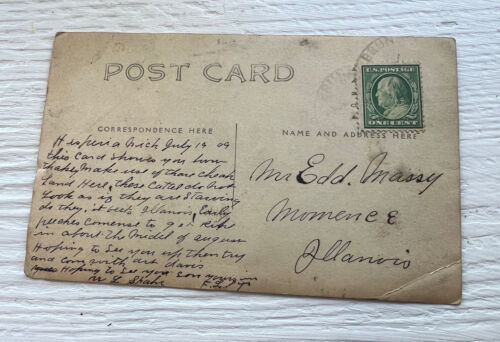 POST CARD
U.S. POSTAGE
ONE CENT
CORRESPONDENCE HERE
NAME AND ADDRESS HERE
Hesperia Mich July 19 09
this Card Shows you how
thay Make use of those cheak
Land Here, these Cattel do Not
Look as if they are Starving
do they, it beets Illanois, Early
peeches Comense to get Ripe
in about the Midel of August
Hoping to See you up then try
and Com with art davis
Hoping to See you Soon
Mr Edd. Massy
Momence
Illanois